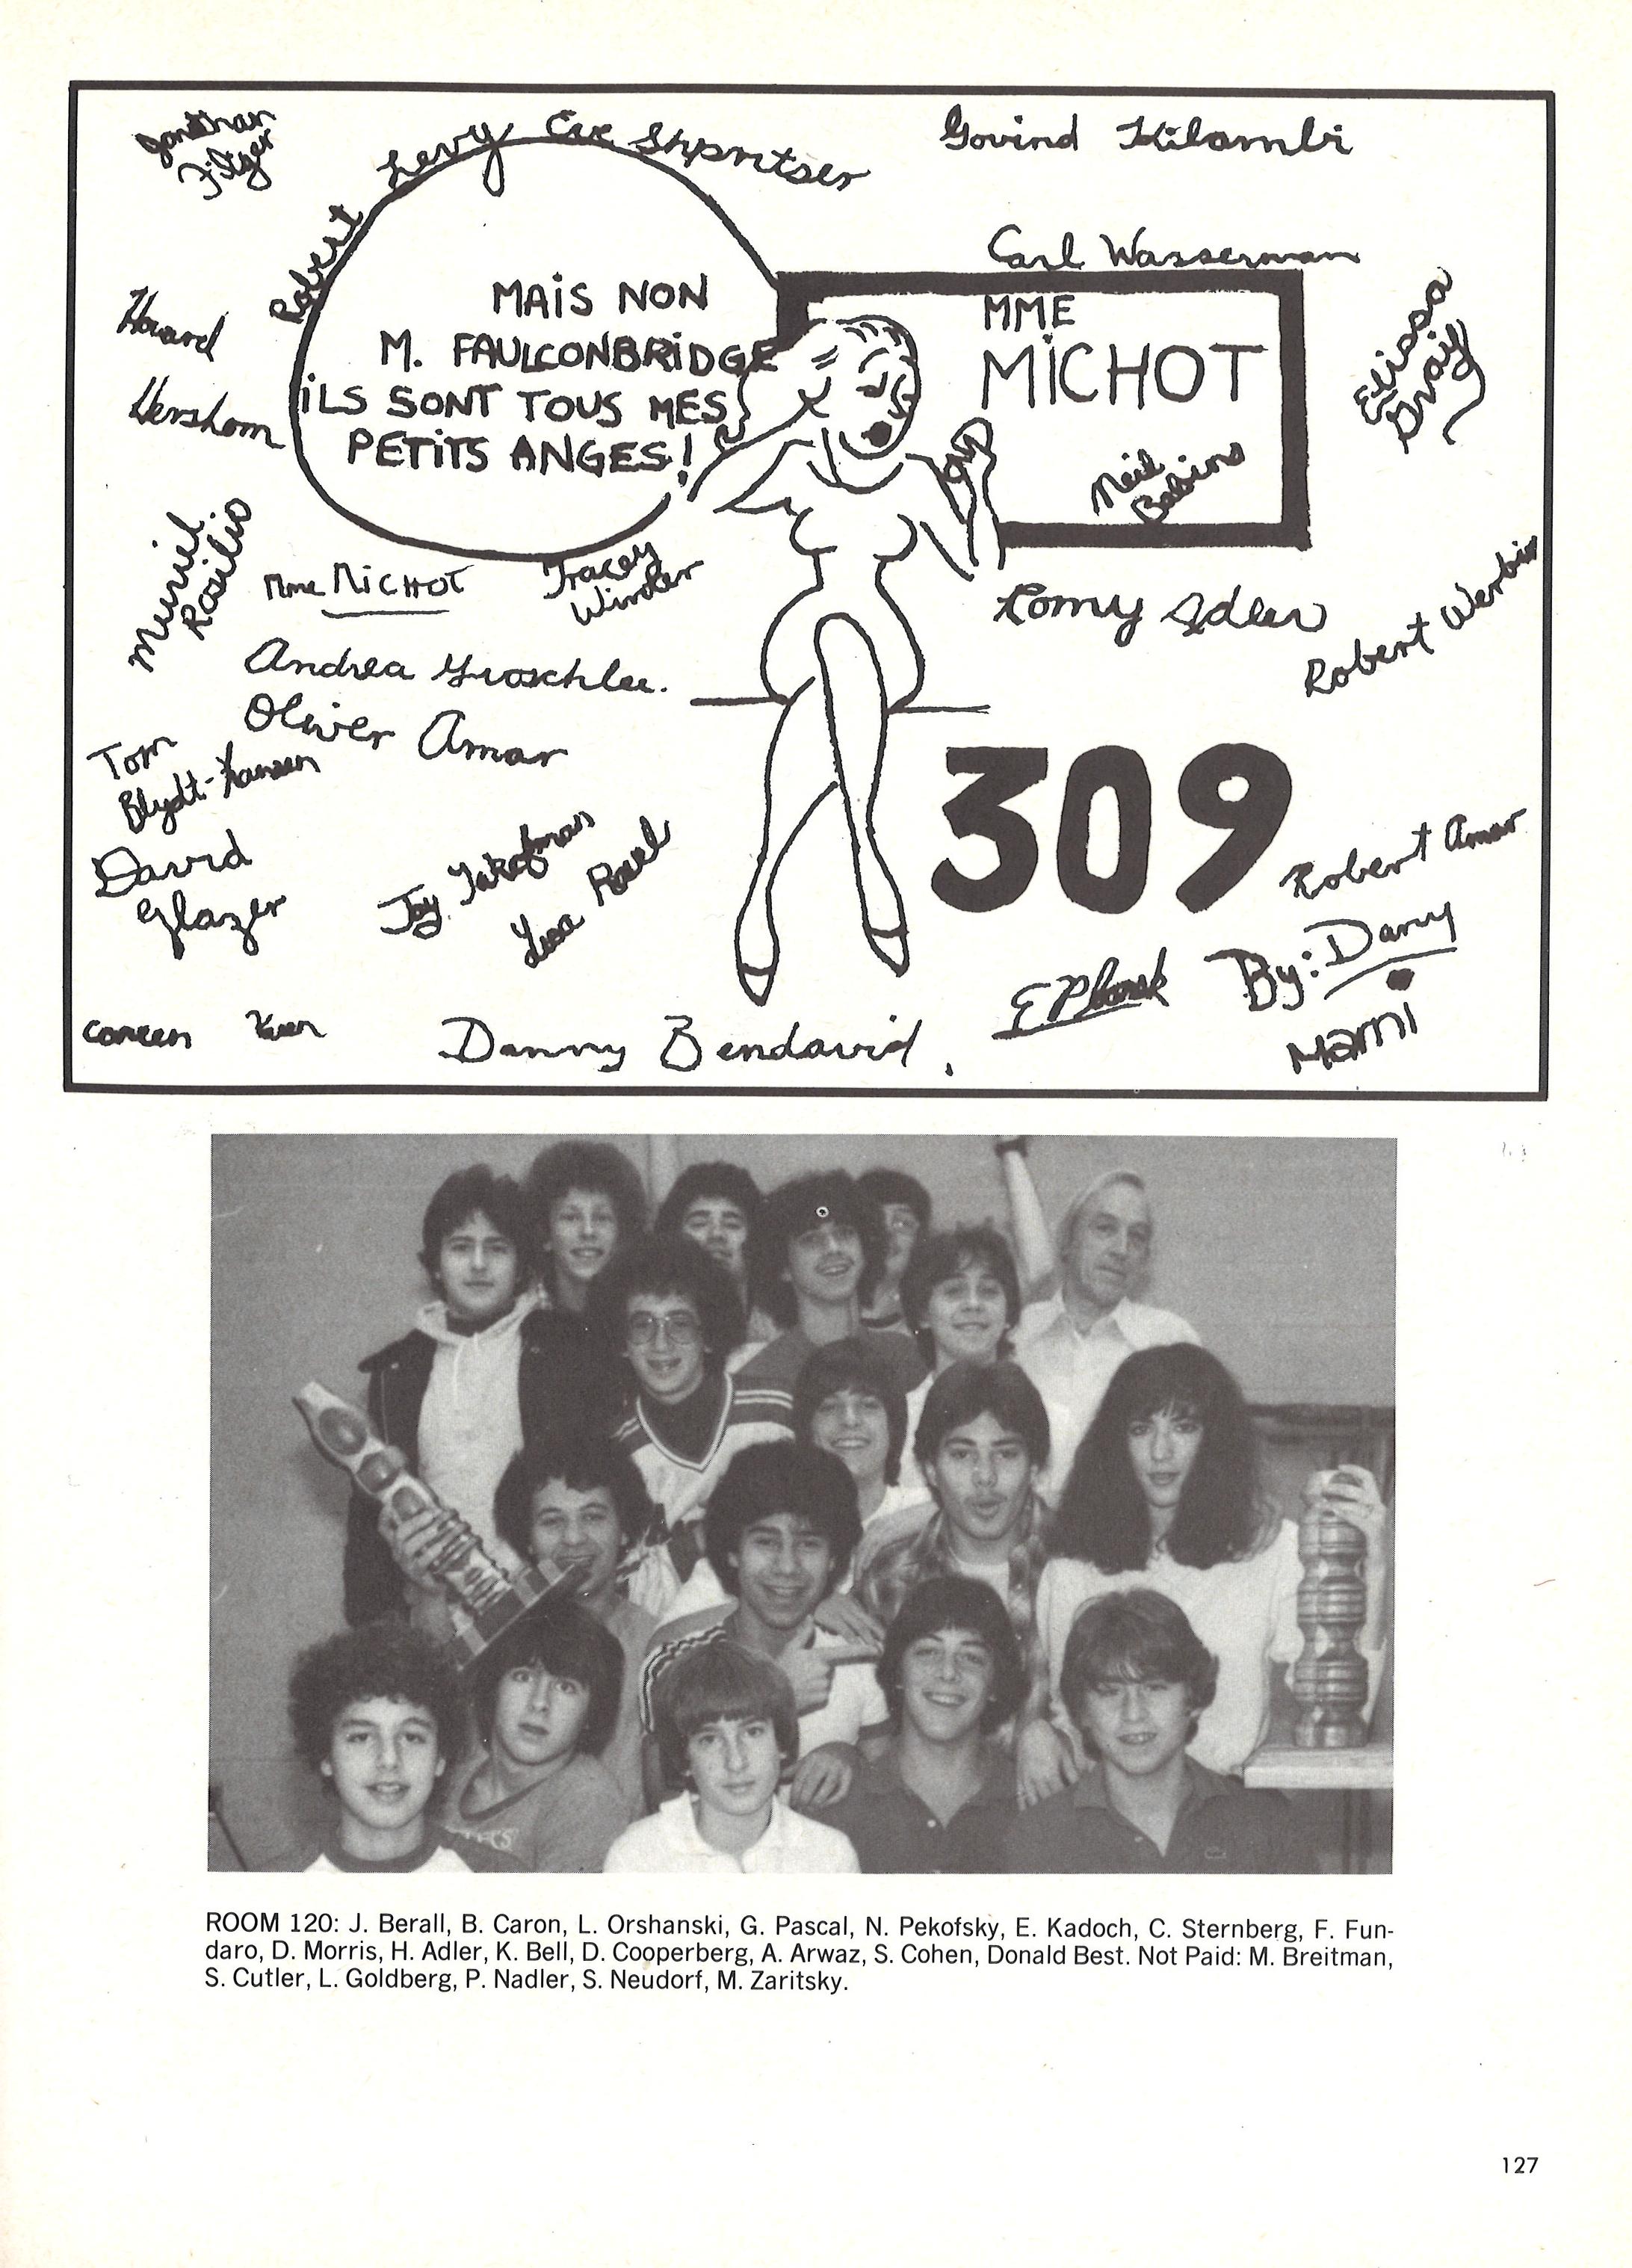 Jonathan
Robert Levy
Eve Shpritser
Govind Kilambi
Carl Wasserman
Howard
Hershorn
MAiS NON
M. FAULCONBRiDGE
iLS SONT TOUS MES
PETiTS ANGES!
MME
MiCHOT
Neil
Elissa
Muriel
Mme MiCHOT
Tracey
Romy Adler
Robert Werbin
Andrea
Oliver Amar
Tom
Blydt-Hansen
David
Glazer
Joy
Lisa
309
Robert Amar
By: Dany
E Plank
Danny Bendavid.
Mami
ROOM 120: J. Berall, B. Caron, L. Orshanski, G. Pascal, N. Pekofsky, E. Kadoch, C. Sternberg, F. Fun-
daro, D. Morris, H. Adler, K. Bell, D. Cooperberg, A. Arwaz, S. Cohen, Donald Best. Not Paid: M. Breitman,
S. Cutler, L. Goldberg, P. Nadler, S. Neudorf, M. Zaritsky.
127